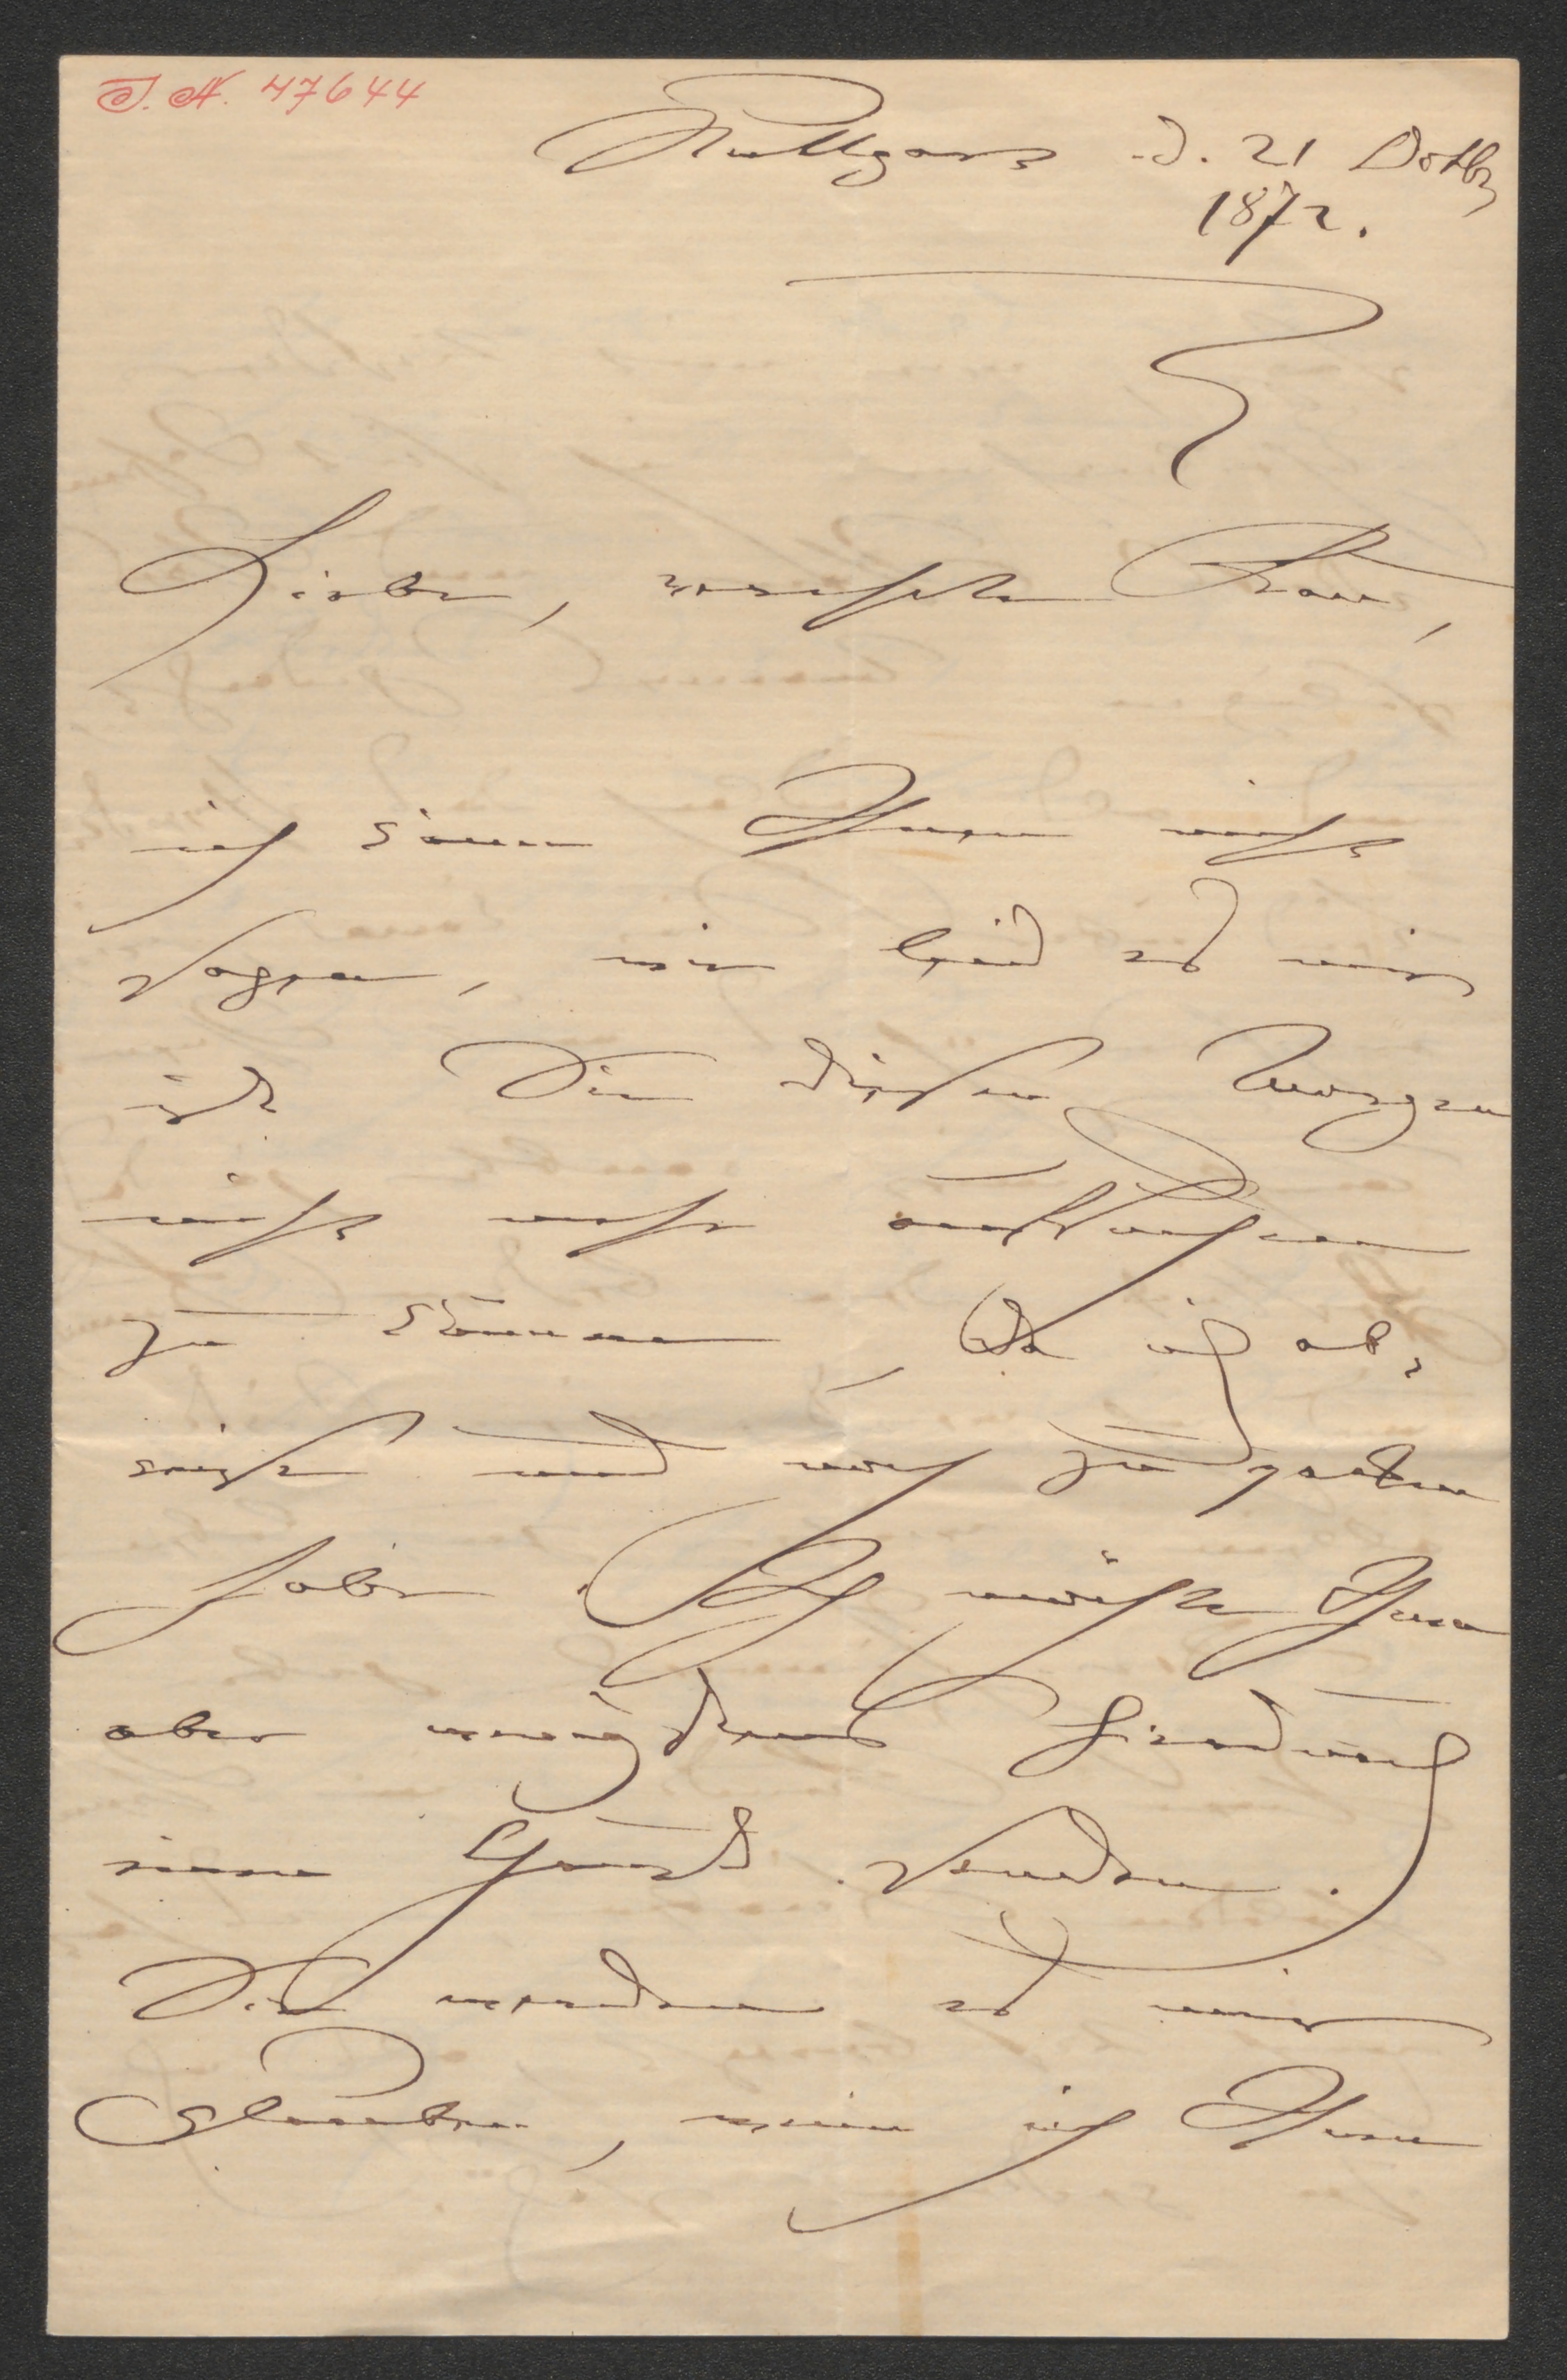 J. N. 47644
Stuttgart d. 21 Octbr
1872.
Liebe, verehrte Frau,
ich kann Ihnen nicht
sagen, wie leid es mir
ist Sie diesen Morgen
nicht mehr aufsuchen
zu können, da ich ab-
reise und noch zu packen
habe. Ich möchte Ihnen
aber wenigstens hiedurch
einen Gruß senden.
Sie werden es mir
glauben, wenn ich Ihnen